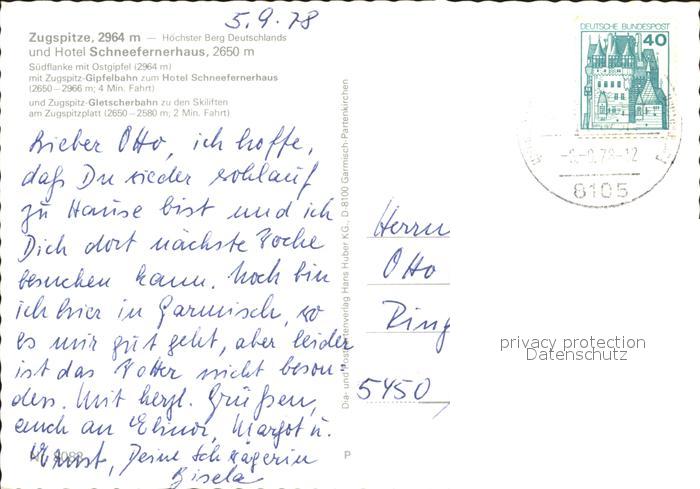 5.9.78
Zugspitze, 2964 m — Höchster Berg Deutschlands
und Hotel Schneefernerhaus, 2650 m
Südflanke mit Ostgipfel (2964 m)
mit Zugspitz-Gipfelbahn zum Hotel Schneefernerhaus
(2650–2966 m; 4 Min. Fahrt)
und Zugspitz-Gletscherbahn zu den Skiliften
am Zugspitzplatt (2650–2580 m; 2 Min. Fahrt)
Lieber Otto, ich hoffe,
daß Du wieder wohlauf
zu Hause bist und ich
Dich dort nächste Woche
besuchen kann. Noch bin
ich hier in Garmisch, wo
es mir gut geht, aber leider
ist das Wetter nicht beson-
ders. Mit herzl. Grüßen,
auch an Elinor, Margot u.
Ernst, Deine Schwägerin
Gisela
P
Dia- und Postkartenverlag Hans Huber KG., D-8100 Garmisch-Partenkirchen
DEUTSCHE BUNDESPOST
40
78-12
8105
Herrn
Otto
Ring
5450
privacy protection
Datenschutz